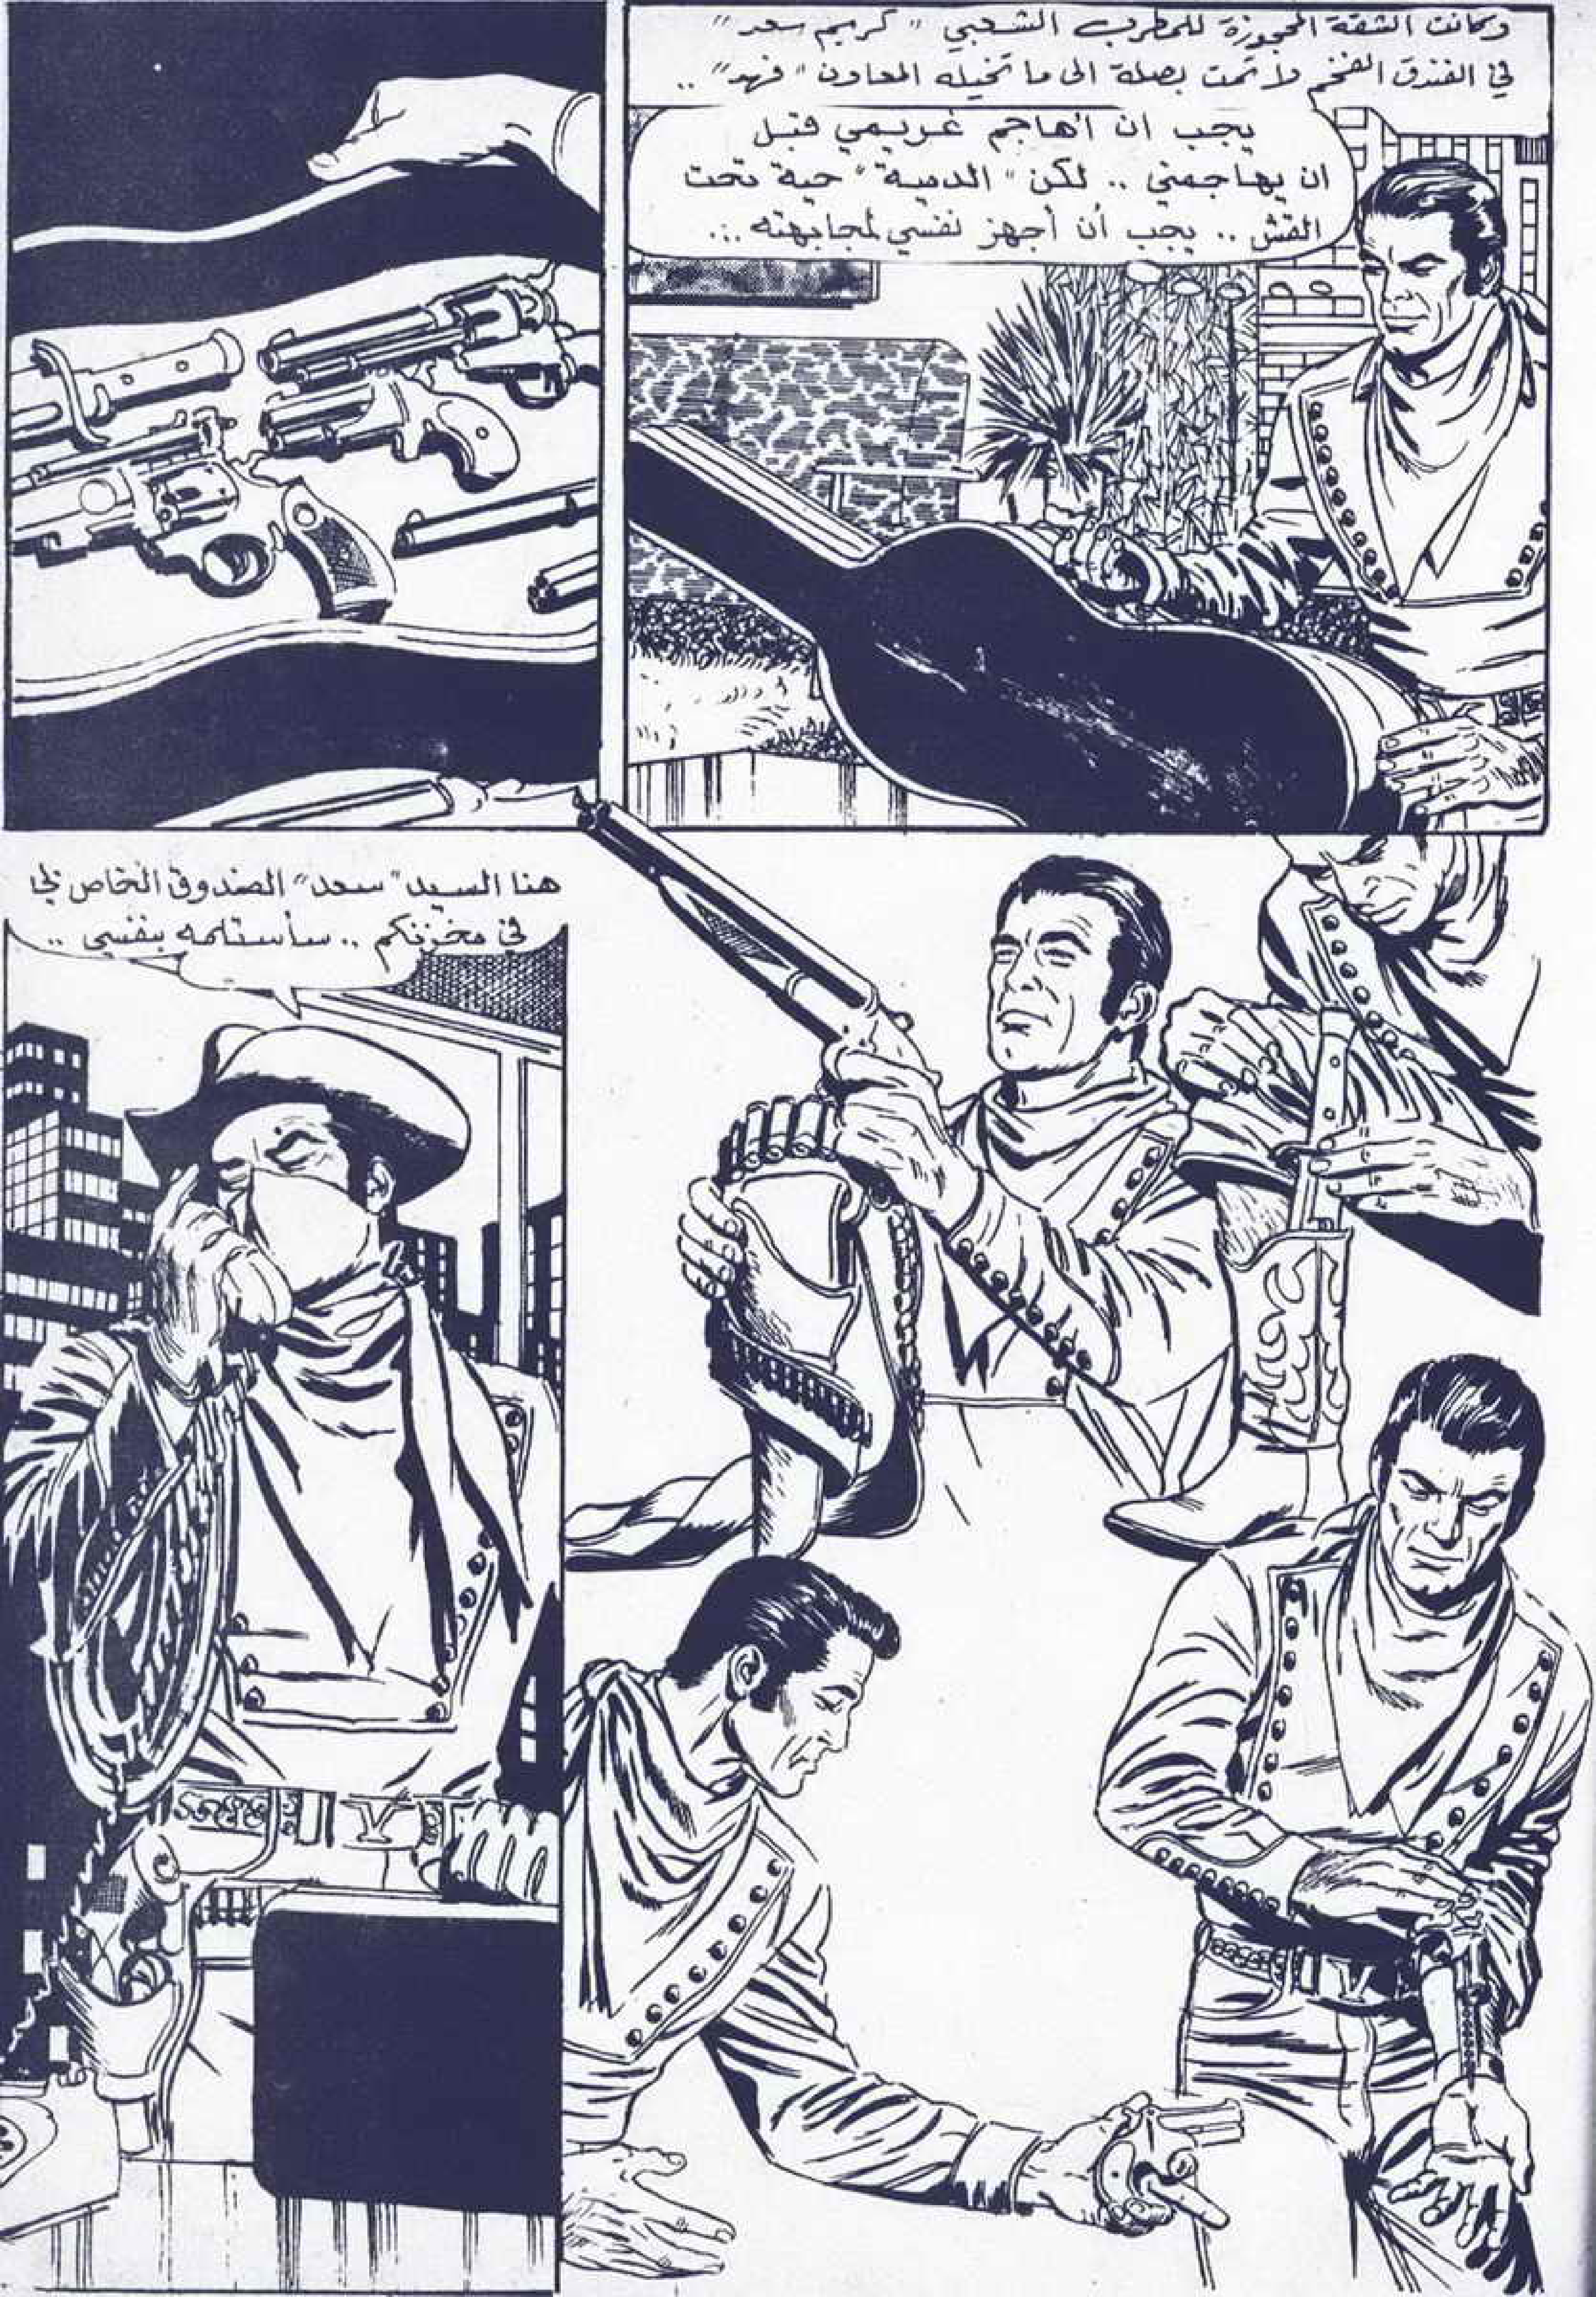 وكانت الشقة المحجوزة للمطرب الشعبي "كريم سعد"
في الفندق الفخم ولا تمت بصلة الى ما تخيله المعاون "فهد"..
يجب ان أهاجم غريمي قبل
ان يهاجمني .. لكن "الدمية" حية تحت
القش .. يجب أن أجهز نفسي لمجابهته ...
هنا السيد "سعد" الصندوق الخاص لي
في مخزنكم .. سأستلمه بنفسي ..
V
V